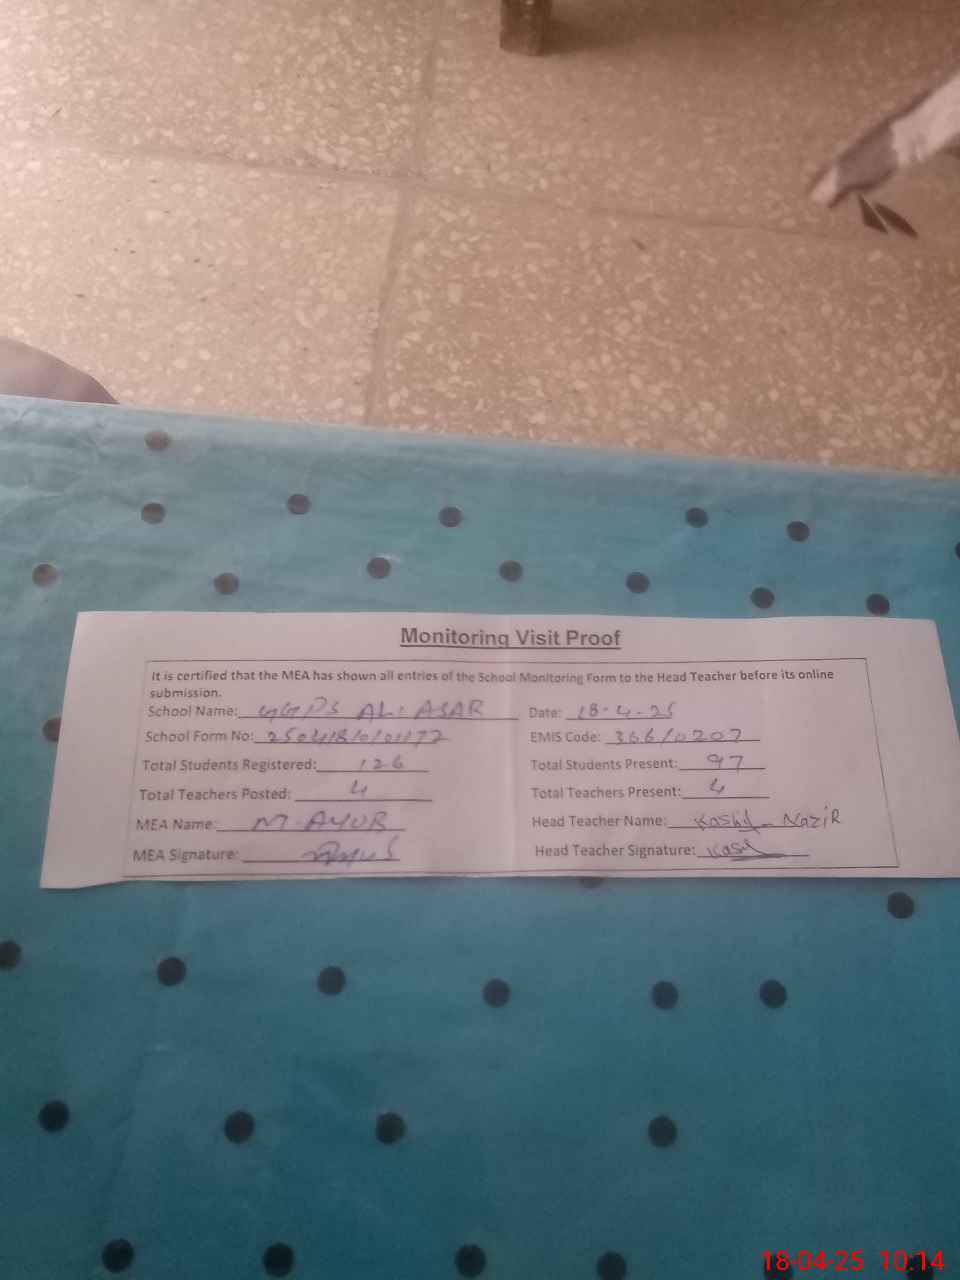 Monitoring Visit Proof
It is certified that the MEA has shown all entries of the School Monitoring Form to the Head Teacher before its online
submission.
School Name: GGPS ALI ASAR Date: 18-4-25
School Form No: EMIS Code: 36610207
Total Students Registered: 126 Total Students Present: 97
Total Teachers Posted: 4 Total Teachers Present: 4
MEA Name: M. AYUB Head Teacher Name: Kashif Nazir
MEA Signature: Head Teacher Signature:
18-04-25 10:14